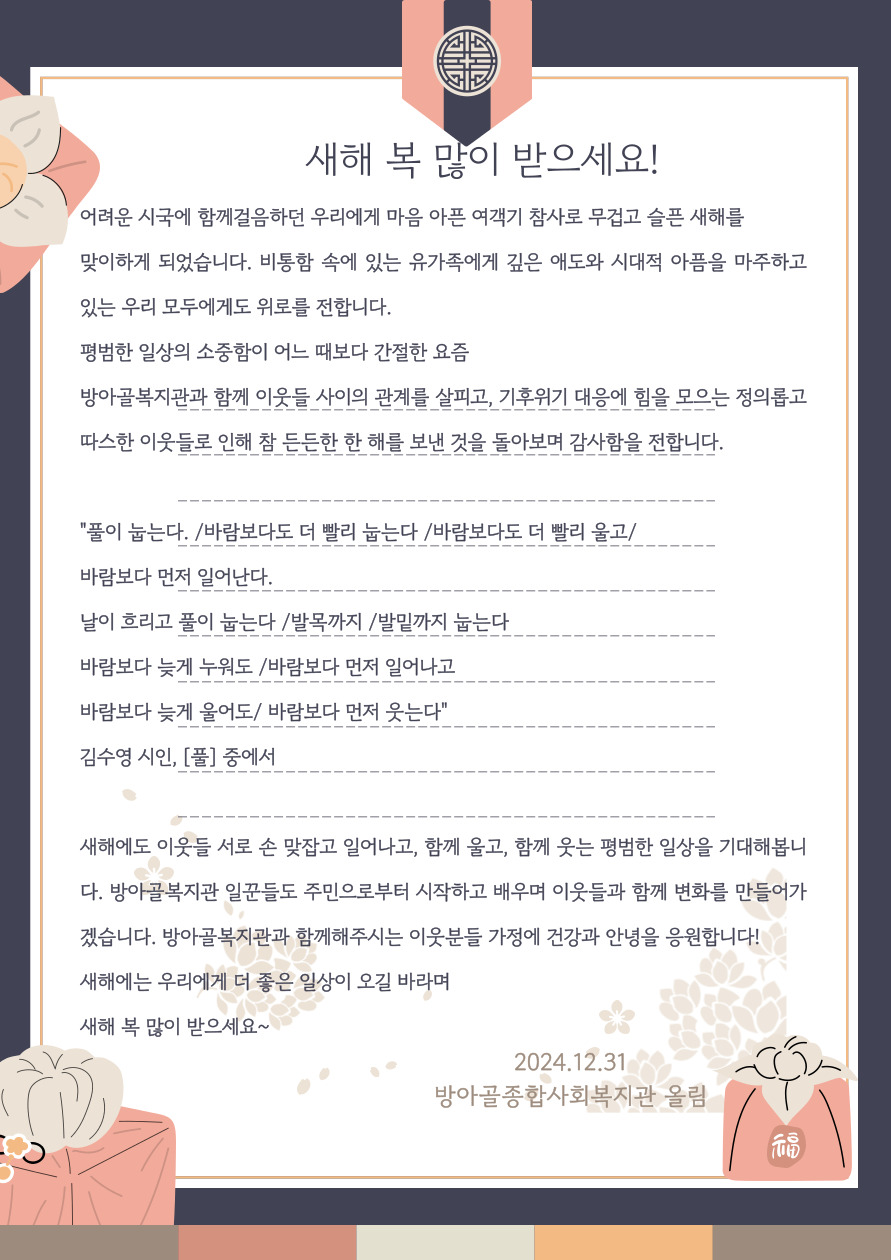 새해 복 많이 받으세요!
어려운 시국에 함께걸음하던 우리에게 마음 아픈 여객기 참사로 무겁고 슬픈 새해를
맞이하게 되었습니다. 비통함 속에 있는 유가족에게 깊은 애도와 시대적 아픔을 마주하고
있는 우리 모두에게도 위로를 전합니다.
평범한 일상의 소중함이 어느 때보다 간절한 요즘
방아골복지관과 함께 이웃들 사이의 관계를 살피고, 기후위기 대응에 힘을 모으는 정의롭고
따스한 이웃들로 인해 참 든든한 한 해를 보낸 것을 돌아보며 감사함을 전합니다.
"풀이 눕는다. /바람보다도 더 빨리 눕는다 /바람보다도 더 빨리 울고/
바람보다 먼저 일어난다.
날이 흐리고 풀이 눕는다 /발목까지 /발밑까지 눕는다
바람보다 늦게 누워도 /바람보다 먼저 일어나고
바람보다 늦게 울어도/ 바람보다 먼저 웃는다"
김수영 시인, [풀] 중에서
새해에도 이웃들 서로 손 맞잡고 일어나고, 함께 울고, 함께 웃는 평범한 일상을 기대해봅니
다. 방아골복지관 일꾼들도 주민으로부터 시작하고 배우며 이웃들과 함께 변화를 만들어가
겠습니다. 방아골복지관과 함께해주시는 이웃분들 가정에 건강과 안녕을 응원합니다!
새해에는 우리에게 더 좋은 일상이 오길 바라며
새해 복 많이 받으세요~
2024.12.31
방아골종합사회복지관 올림
福